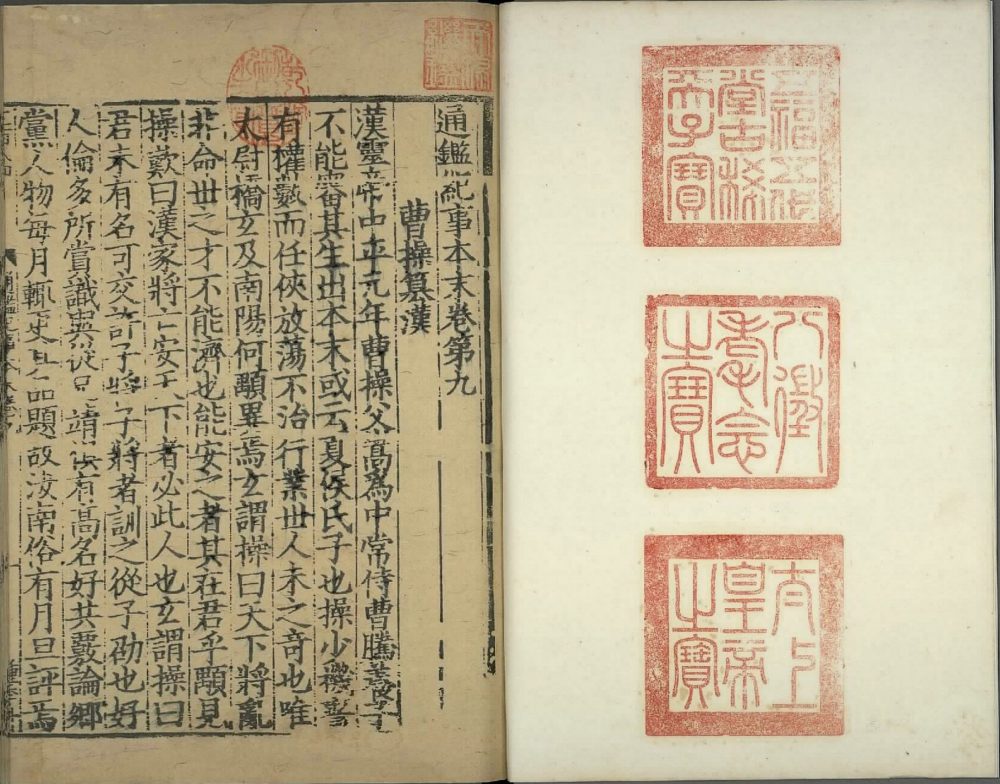 五福五代
堂古稀
天子寶
八徵
耄念
之寶
太上
皇帝
之寶
乾隆御覽之寶
通鑑紀事本末卷第九
曹操篡漢
漢靈帝中平元年曹操父嵩爲中常侍曹騰養子
不能審其生出本末或云夏侯氏子也操少機警
有權數而任俠放蕩不治行業世人未之奇也唯
太尉橋玄及南陽何顒異焉玄謂操曰天下將亂
非命世之才不能濟也能安之者其在君乎顒見
操歎曰漢家將亡安天下者必此人也玄謂操曰
君未有名可交許子將子將者訓之從子劭也好
人倫多所賞識與從兄靖俱有高名好共覈論鄉
黨人物每月輒更其品題故汝南俗有月旦評焉